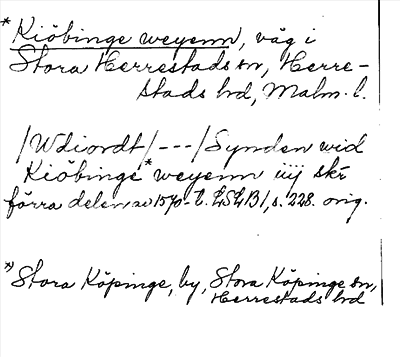 * Kiöbinge weyenn, väg i
Stora Herrestads sn, Herre-
stads hd, Malm. l.
/Wdiordt/---/Synden wid
Kiöbinge* weyenn iiij skr
förra delen av 1570-t. LSLB1, s. 228. orig.
*) Stora Köpinge, by, Stora Köpinge sn,
Herrestads hd